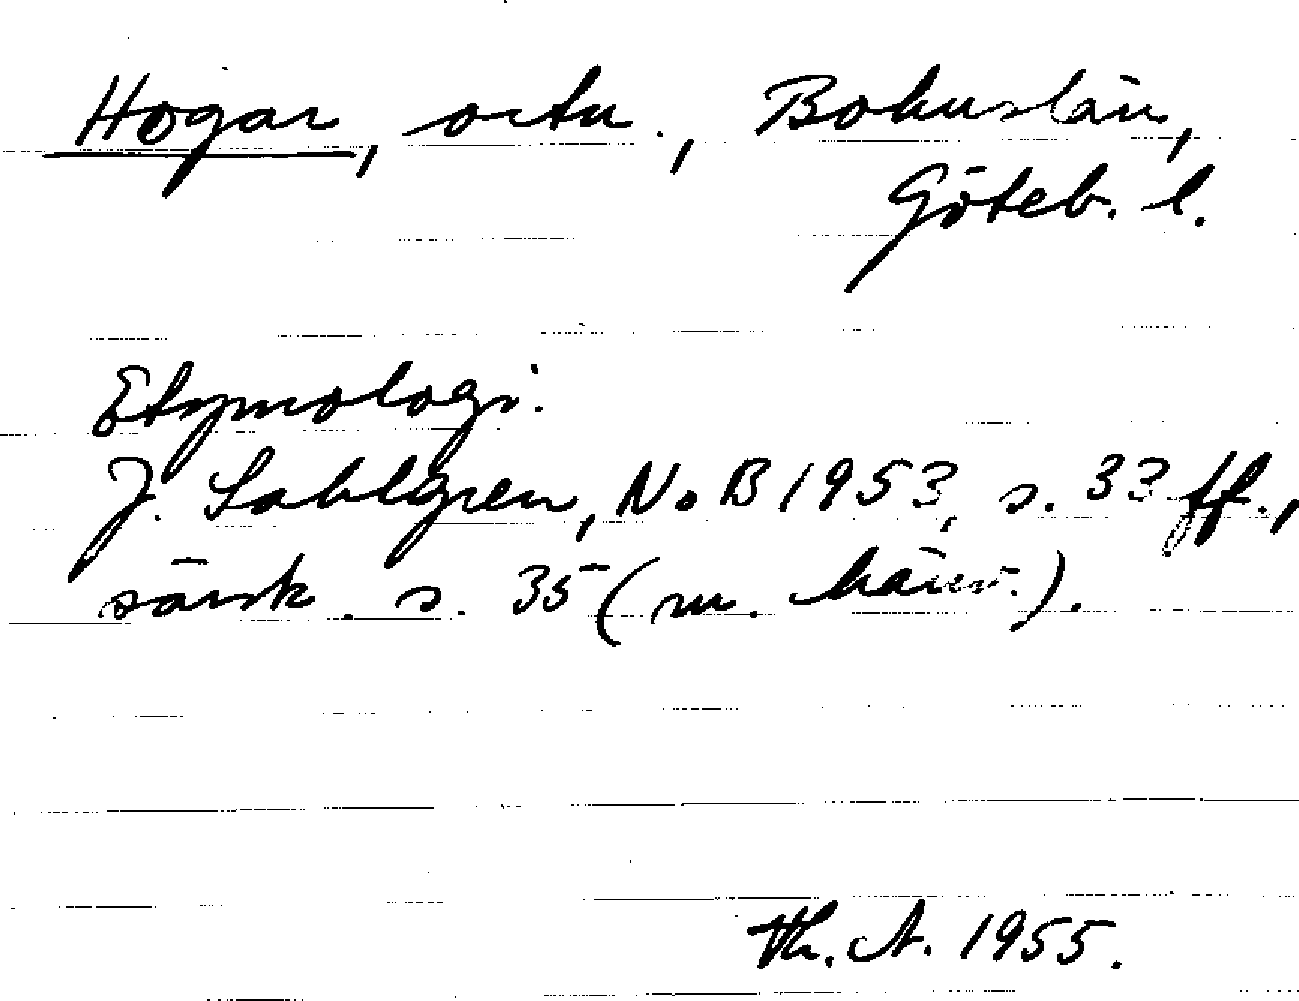 Hogar, ortn., Bohuslän,
Göteb. l.
Etymologi:
J. Sahlgren, NoB 1953, s. 33 ff.,
särsk. s. 35 (m. hänv.).
Th. A. 1955.